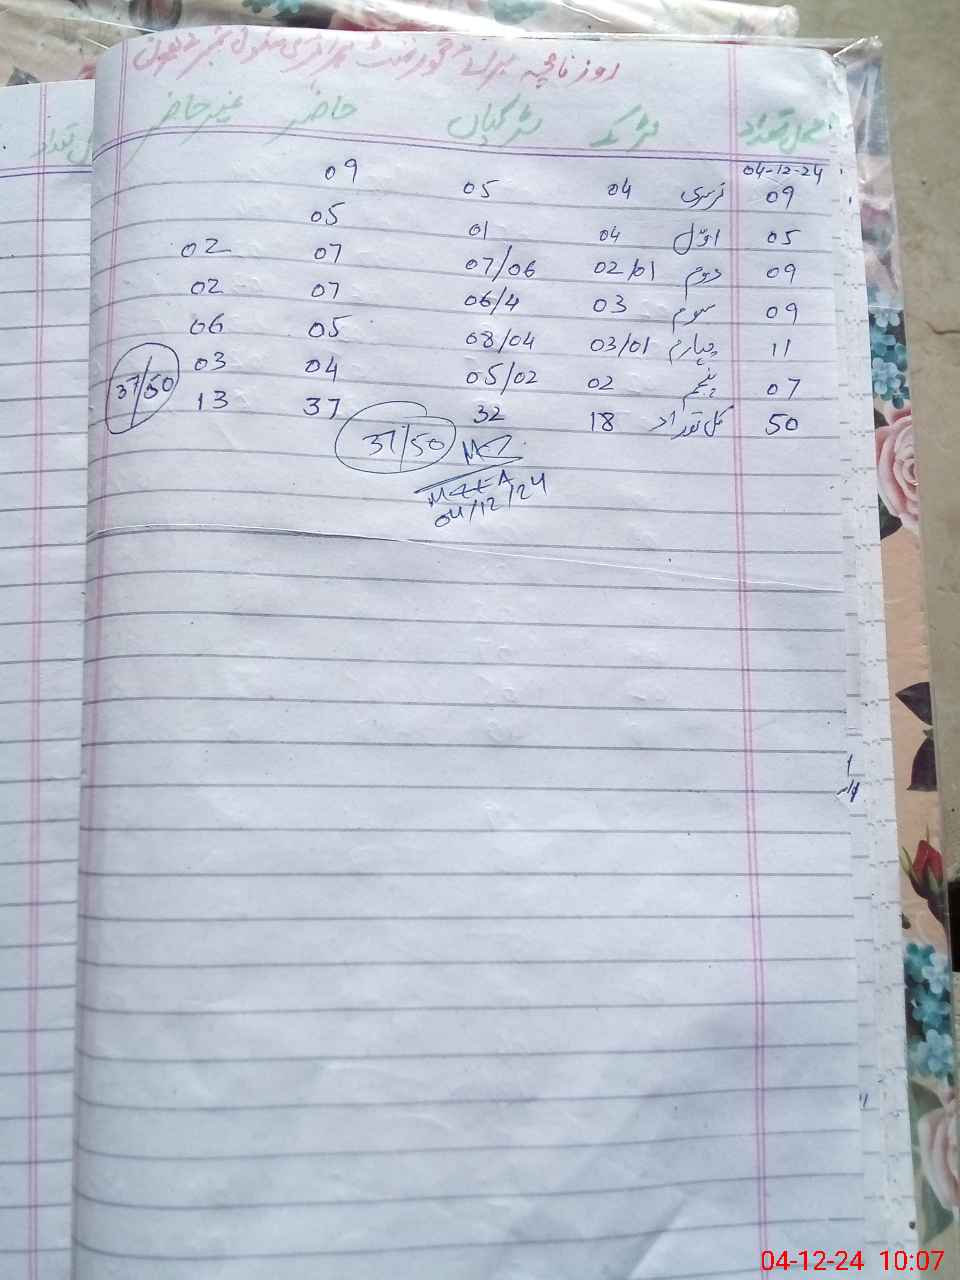 روزنامچہ برائے گورنمنٹ پرائمری سکول نمبر
کل تعداد لڑکے لڑکیاں حاضر غیر حاضر
04-12-24
09 نرسری 04 05 09
05 اوّل 04 01 05
09 دوم 02/01 07/06 07 02
09 سوم 03 06/4 07 02
11 چہارم 03/01 08/04 05 06
07 پنجم 02 05/02 04 03
50 کل تعداد 18 32 37 13
37/50
37/50
04/12/24
کل تعداد
04-12-24 10:07